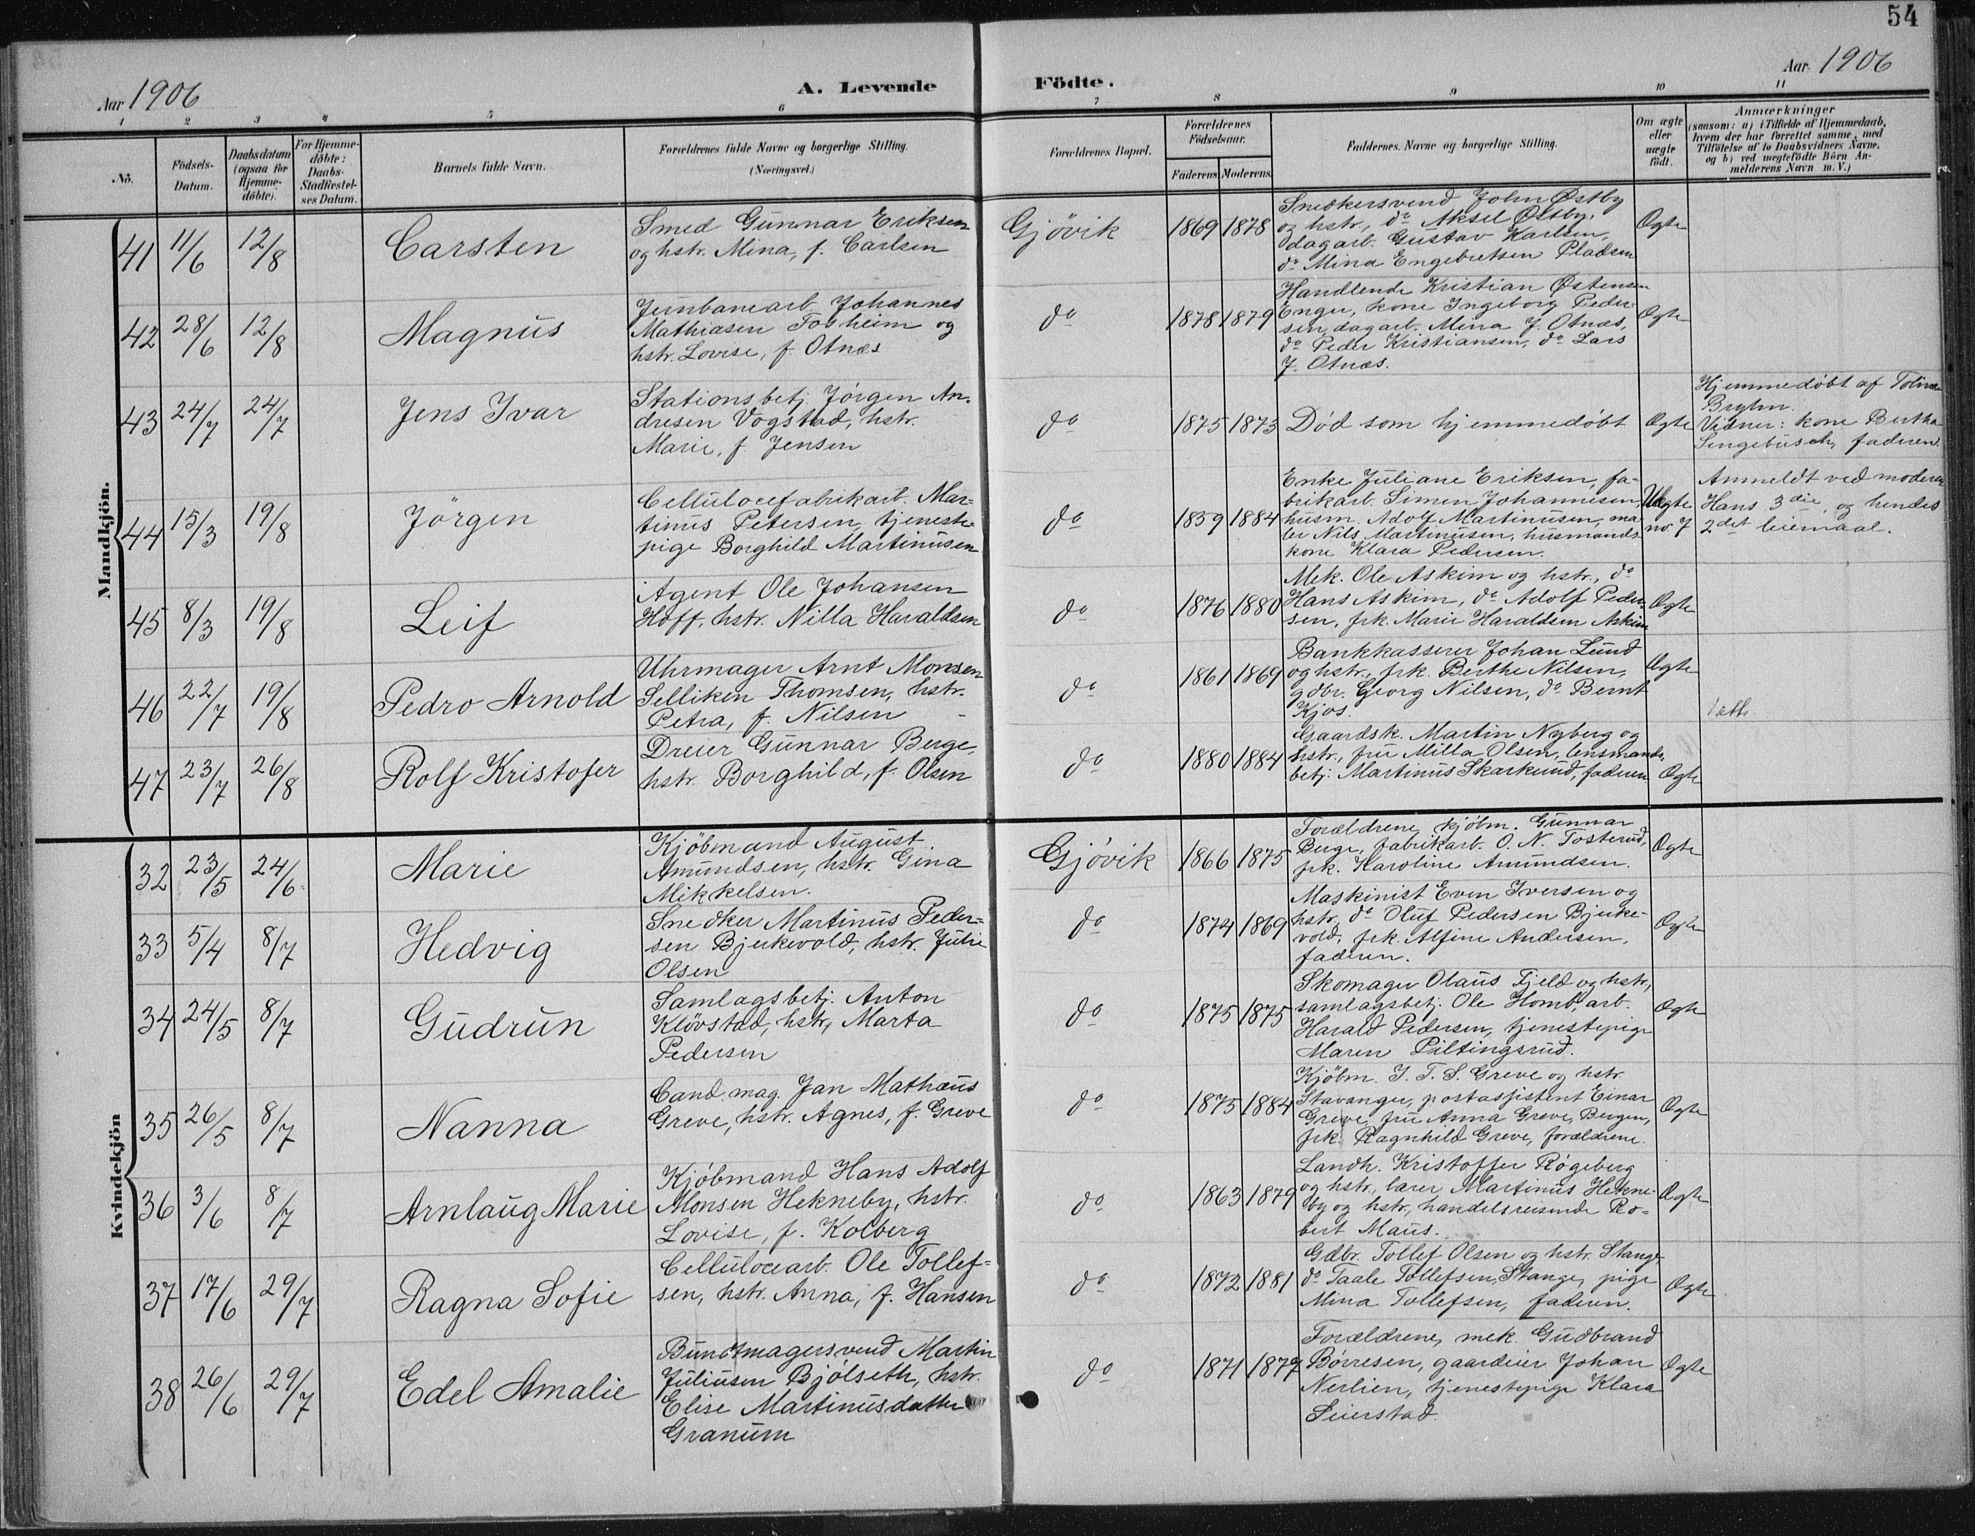 54
Aar 1906
A. Levende Födte.
Aar 1906
1 2 3 4 5 6 7 8 9 10 11
No.
Födsels-
Datum.
Daabsdatum
(ogsaa for
Hjemme-
döbte).
For Hjemme-
döbte:
Daabs-
Stadfæstel-
ses Datum.
Barnets fulde Navn.
Forældrenes fulde Navne og borgerlige Stilling.
(Næringsvei.)
Forældrenes Bopæl.
Forældrenes
Födselsaar.
Faderens. Moderens.
Faddernes Navne og borgerlige Stilling.
Om ægte
eller
uægte
födt.
Anmærkninger
(saasom: a) i Tilfælde af Hjemmedaab,
hvem der har forrettet samme, med
Tilföielse af to Daabsvidners Navne,
og b) ved uægtefödte Börn An-
melderens Navn m. V.)
Mandkjön.
41 11/6 12/8 Carsten
Smed Gunnar Eriksen
og hstr. Mina, f. Carlsen
Gjövik 1869 1878
Snedkersvend John Østby
og hstr., do Aksel Østby,
dagarb. Gustav Karlsen,
do Mina Engebretsen Pladsen
Ægte
42 28/6 12/8 Magnus
Jernbanearb. Johannes
Mathiasen Tosheim og
hstr. Lovise, f. Otnæs
do 1878 1879
Handlende Kristian Østensen
Enger, kone Ingeborg Peder-
sen, dagarb. Mina J. Otnæs,
do Peder Kristiansen, do Lars
J. Otnæs.
Ægte
43 24/7 24/7 Jens Ivar
Stationsbetj. Jörgen An-
dresen Vogstad, hstr.
Marie, f. Jensen
do 1875 1873 Död som hjemmedöbt Ægte
Hjemmedöbt af
Bryhn.
Vidner: kone Bertha
Sengebusch, faderen.
44 15/3 19/8 Jörgen
Cellulosefabrikarb. Mar-
tinus Petersen, tjeneste-
pige Borghild Martinusen
do 1859 1884
Enke Juliane Eriksen, fa-
brikarb. Simen Johannesen,
husm. Adolf Martinusen, ma-
ler Nils Martinusen, husmands-
kone Klara Pedersen.
Uægte
no 7
Anmeldt ved moderen
Hans 3die, og hendes
2det leiemaal.
45 8/3 19/8 Leif
Agent Ole Johansen
Hoff, hstr. Nilla Haraldsen
do 1876 1880
Mek. Ole Askim og hstr., do
Hans Askim, do Adolf Peder-
sen, frk. Marie Haraldsen Askim
Ægte
46 22/7 19/8 Pedro Arnold
Uhrmager Arnt Monsen
Selliken Thomsen, hstr.
Petra, f. Nilsen
do 1861 1869
Bankkasserer Johan Lund
og hstr., frk. Berthe Nilsen,
gdbr. Georg Nilsen, do Bernt
Kjos.
Ægte
1 att.
47 23/7 26/8 Rolf Kristofer
Dreier Gunnar Berge,
hstr. Borghild, f. Olsen
do 1880 1884
Gaardsk. Martin Nyberg og
hstr., fru Milla Olsen, lensmands-
betj. Martinus Skarkerud, faderen
Ægte
Kvindekjön
32 23/5 24/6 Marie
Kjöbmand August
Amundsen, hstr. Gina
Mikkelsen.
Gjövik 1866 1875
Forældrene, kjöbm. Gunnar
Berge, fabrikarb. O. N. Tosterud,
frk. Karoline Amundsen.
Ægte
33 5/4 8/7 Hedvig
Snedker Martinus Peder-
sen Bjerkevold, hstr. Julie
Olsen
do 1874 1869
Maskinist Even Iversen og
hstr., do Oluf Pedersen Bjerke-
vold, frk. Alfine Andersen,
faderen.
Ægte
34 24/5 8/7 Gudrun
Samlagsbetj. Anton
Klövstad, hstr. Marta
Pedersen
do 1875 1875
Skomager Olaus Fjeld og hstr,
samlagsbetj. Ole Homb, arb.
Harald Pedersen, tjenestepige
Maren Piltingsrud.
Ægte
35 26/5 8/7 Nanna
Cand. mag. Jan Mathæus
Greve, hstr. Agnes, f. Greve
do 1875 1884
Kjöbm. J. T. S. Greve og hstr.
Stavanger, postassistent Einar
Greve, fru Anna Greve, Bergen,
frk. Ragnhild Greve, forældrene.
Ægte
36 3/6 8/7 Arnlaug Marie
Kjöbmand Hans Adolf
Monsen Hekneby, hstr.
Lovise, f. Kolberg
do 1863 1879
Landh. Kristoffer Rögeberg
og hstr., lærer Martinus Hekne-
by og hstr, handelsreisende Ro-
bert Maus.
Ægte
37 17/6 29/7 Ragna Sofie
Cellulosearb. Ole Tollef-
sen, hstr. Anna, f. Hansen
do 1872 1881
Gdbr. Tollef Olsen og hstr. Stange,
do Taale Tollefsen, Stange, pige
Mina Tollefsen, faderen.
Ægte
38 26/6 29/7 Edel Amalie
Buntmagersvend Martin
Juliusen Bjölseth, hstr.
Elise Martinusdatter
Granum
do 1871 1877
Forældrene, mek. Gudbrand
Börresen, gaardeier Johan
Nerlien, tjenestepige Klara
Seierstad.
Ægte